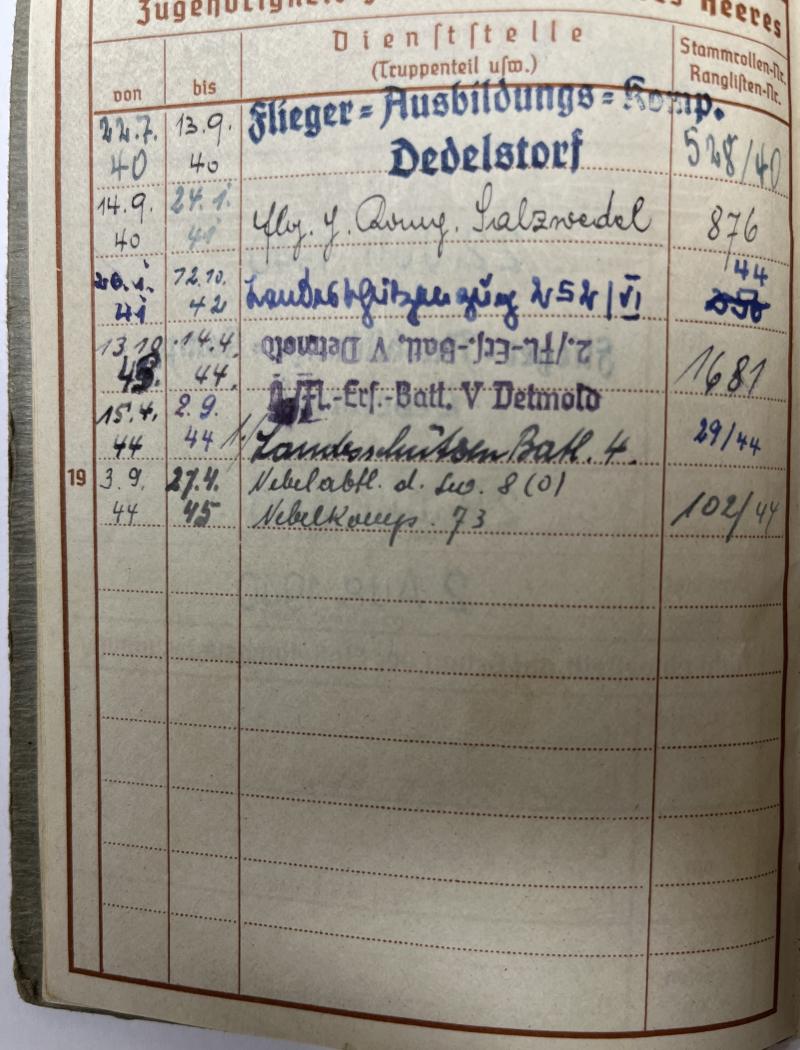 Zugehörigkeit
des Heeres
Dienststelle
(Truppenteil usw.)
Stammrollen-Nr.
Ranglisten-Nr.
von
bis
22.7.
40
13.9.
40
Flieger-Ausbildungs-Komp.
Dedelstorf
528/40
14.9.
40
24.1.
41
Salzwedel
876
41
12.10.
42
Landesschützenzug 252/VI
44
14.4.
44.
2./Fl.-Ers.-Batl. V Detmold
1681
Fl.-Ers.-Batl. V Detmold
15.4.
44
2.9.
44
1./Landesschützen Batl. 4.
29/44
19
3.9.
44
27.4.
45
Nebelabtl. d. Lw. 8 (O)
Nebelkomp. 73
102/44